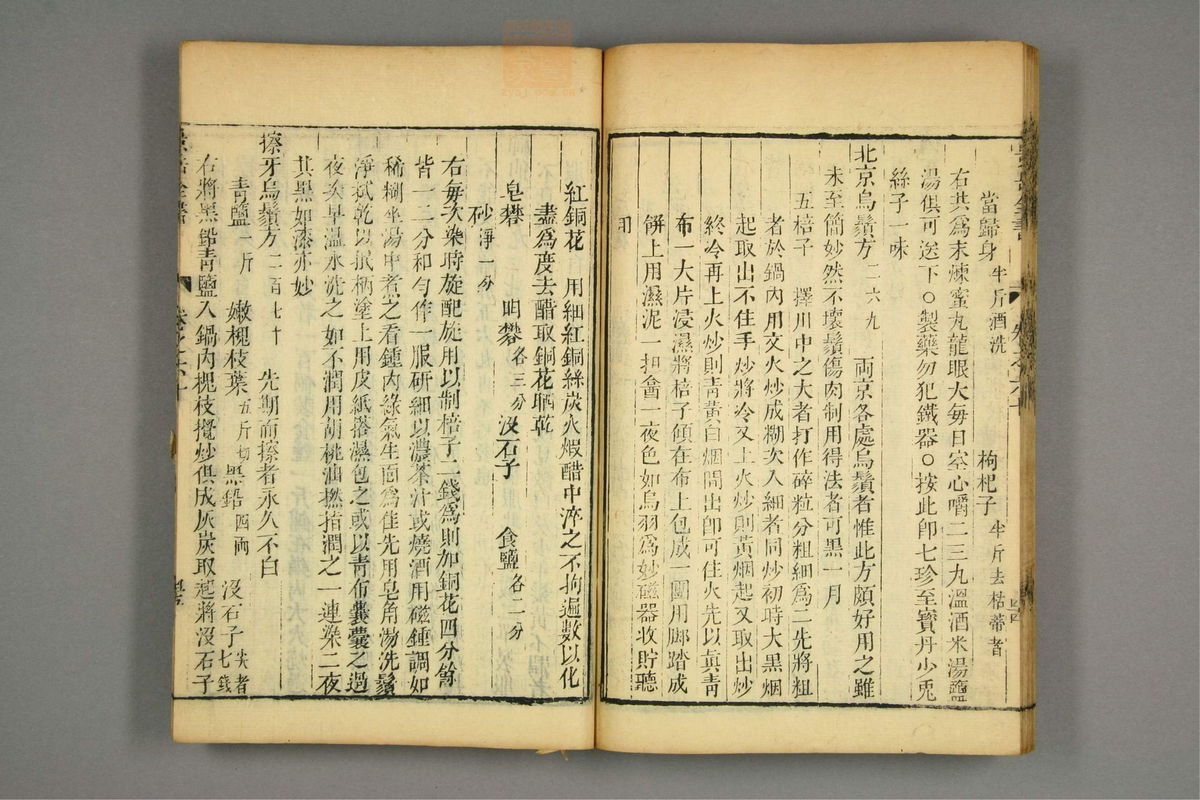 當歸身 半斤酒洗 枸杞子 半斤去枯蒂者
右共爲末煉蜜丸龍眼大每日空心嚼二三丸溫酒米湯鹽
湯俱可送下○製藥勿犯鐵器○按此卽七珍至寶丹少兎
絲子一味
北京烏鬚方 二六九 兩京各處烏鬚者惟此方頗好用之雖
未至簡妙然不壞鬚傷肉制用得法者可黑一月
五棓子 擇川中之大者打作碎粒分粗細爲二先將粗
者於鍋內用文火炒成糊次入細者同炒初時大黑烟
起取出不住手炒將冷又上火炒則黃烟起又取出炒
終冷再上火炒則靑黃白烟間出卽可住火先以眞靑
布一大片浸濕將棓子傾在布上包成一團用脚踏成
餅上用濕泥一扣盦一夜色如烏羽爲妙磁器收貯聽
用
紅銅花 用細紅銅絲炭火煆醋中淬之不拘遍數以化
盡爲度去醋取銅花晒乾
皂礬 明礬 各三分 沒石子 食鹽 各二分
砂 淨一分
右每次染時旋配旋用以制棓子二錢爲則加銅花四分餘
皆一二分和勻作一服研細以濃茶汁或燒酒用磁鍾調如
稀糊坐湯中煮之看鍾內綠氣生面爲佳先用皂角湯洗鬚
淨拭乾以抿柄塗上用皮紙搭濕包之或以靑布囊囊之過
夜次早溫水洗之如不潤用胡桃油撚指潤之一連染二夜
其黑如漆亦妙
擦牙烏鬚方 二百七十 先期而擦者永久不白
靑鹽 一斤 嫩槐枝葉 五斤切 黑鉛 四兩 沒石子 尖者七錢
右將黑鉛靑鹽入鍋內槐枝攪炒俱成灰炭取起將沒石子